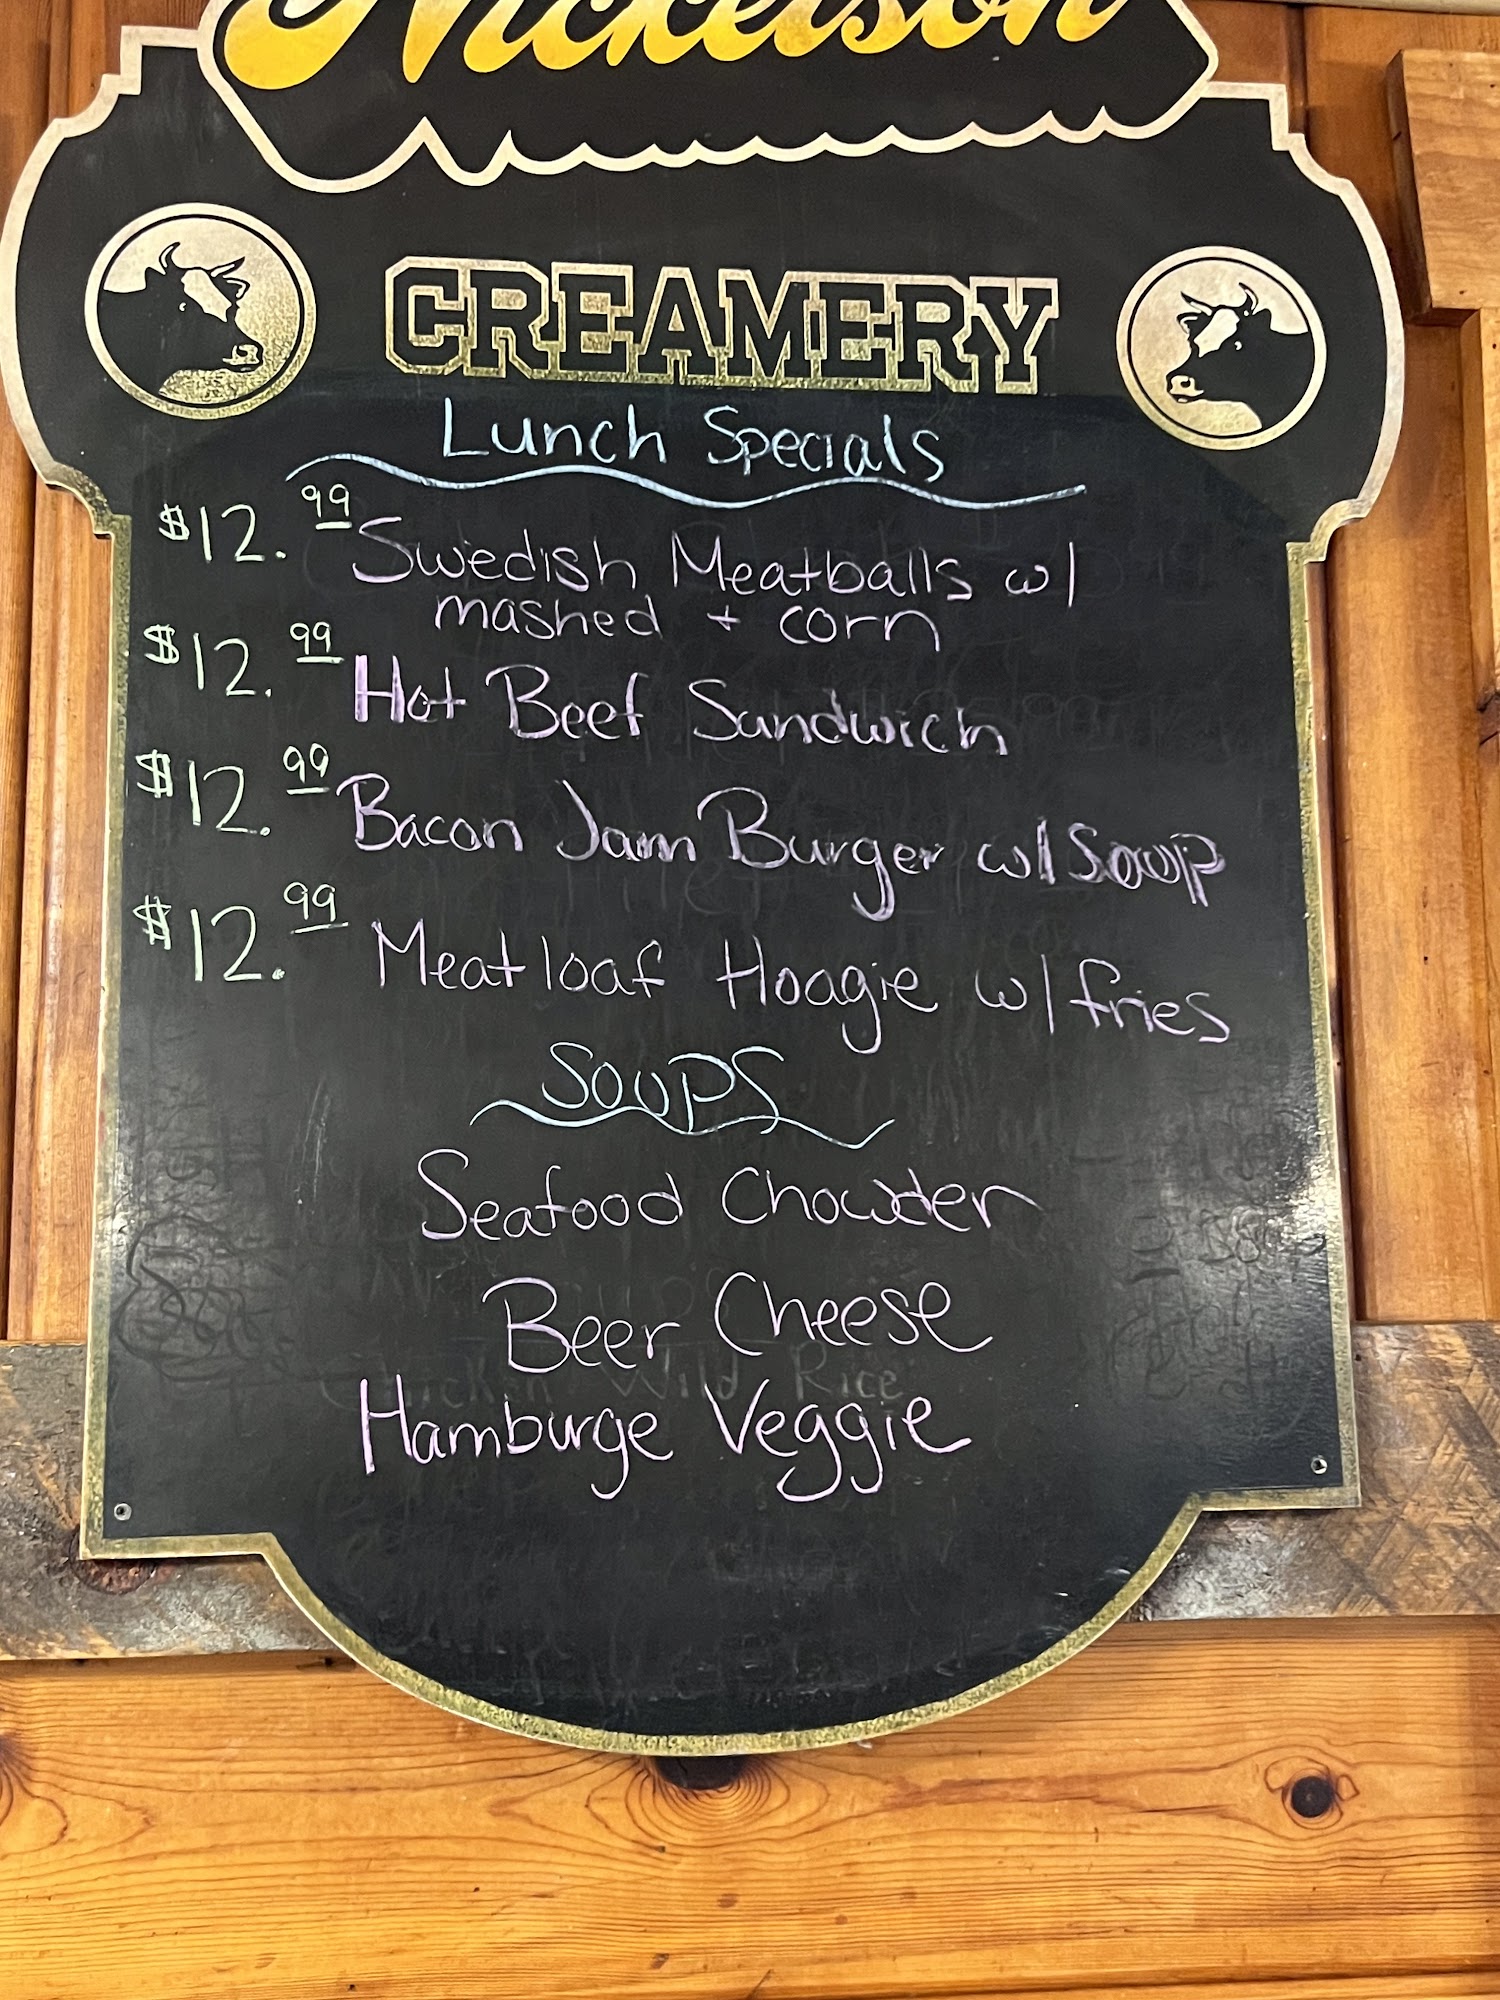 Nickerson
CREAMERY
Lunch Specials
$12.99 Swedish Meatballs w/
mashed + corn
$12.99 Hot Beef Sandwich
$12.99 Bacon Jam Burger w/ Soup
$12.99 Meatloaf Hoagie w/ fries
SOUPS
Seafood Chowder
Beer Cheese
Chicken Wild Rice
Hamburge Veggie